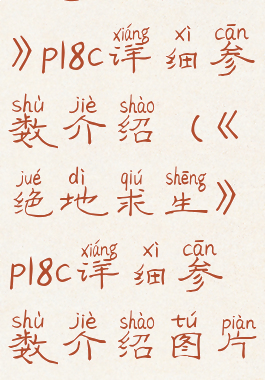 xiáng xì cān
》p18c详细参
shù jiè shào
数介绍（《
jué dì qiú shēng
绝地求生》
xiáng xì cān
p18c详细参
shù jiè shào tú piàn
数介绍图片